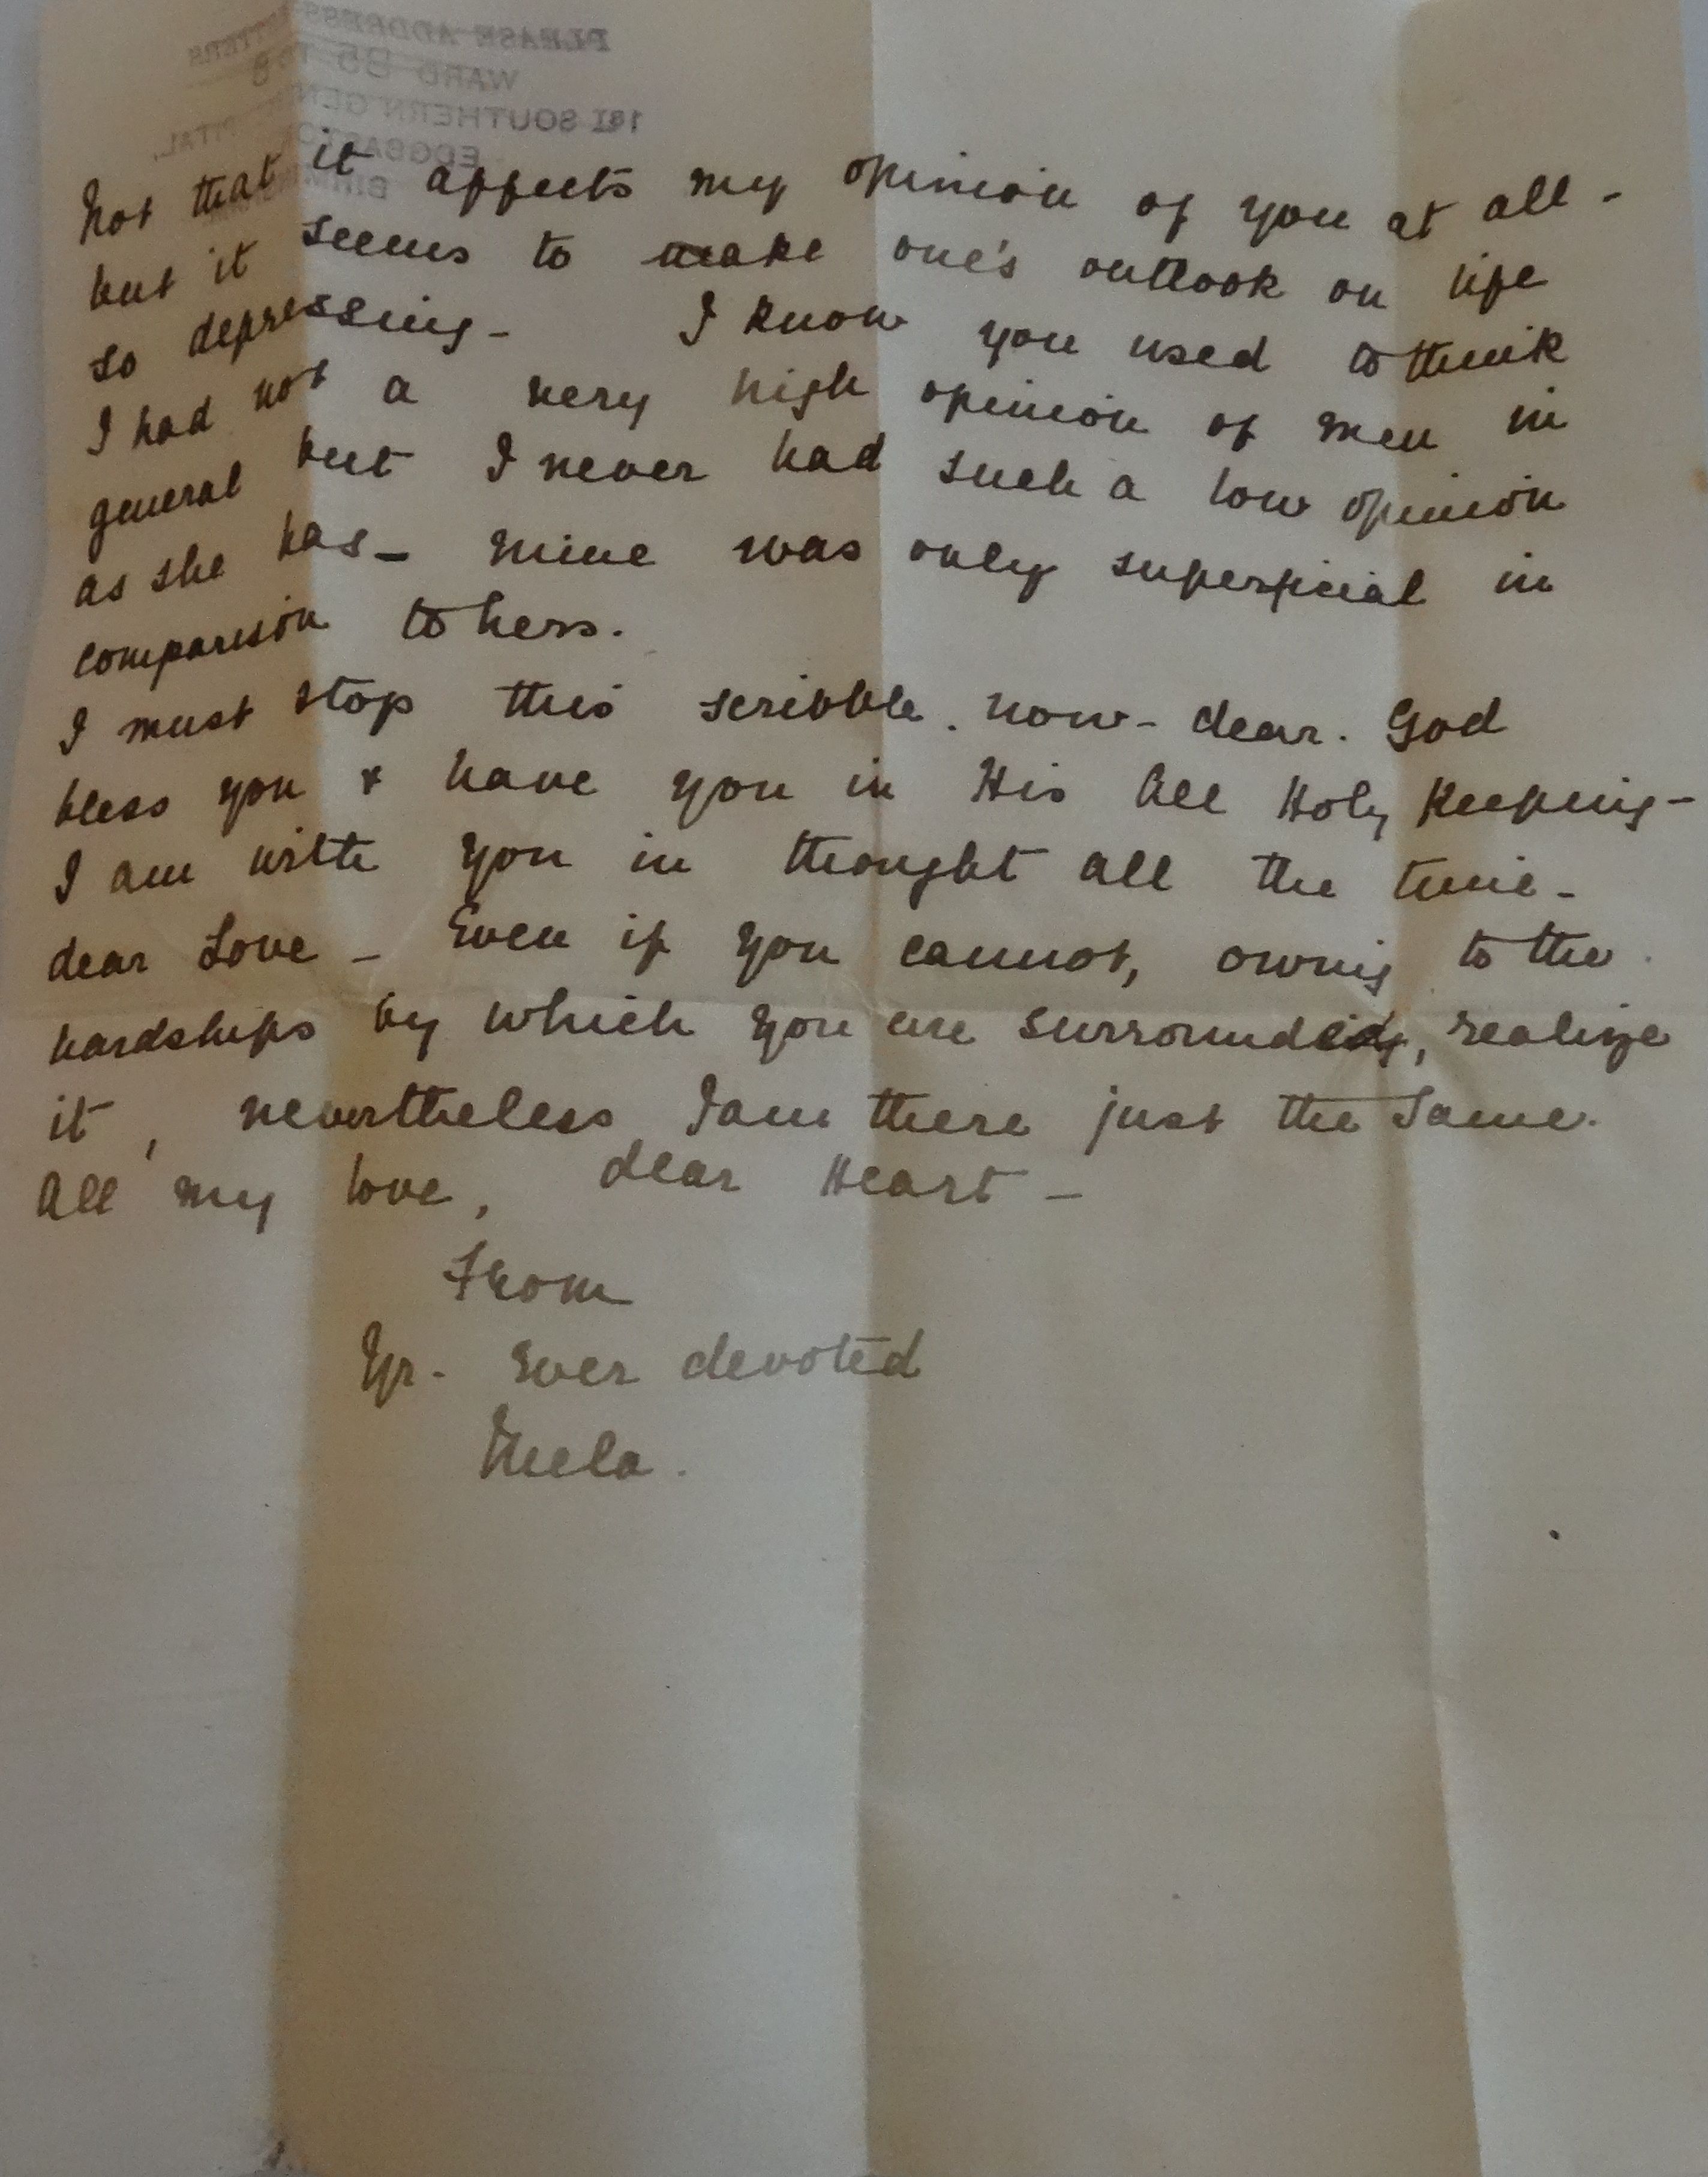 PLEASE ADDRESS LETTERS
WARD B5 TO 8
1ST SOUTHERN GENERAL HOSPITAL,
EDGBASTON
not that it affects my opinion of you at all -
but it seems to make one's outlook on life
so depressing - I know you used to think
I had not a very high opinion of men in
general but I never had such a low opinion
as she has - mine was only superficial in
comparison to hers.
I must stop this scribble. now - dear. God
bless you & have you in His All Holy Keeping -
I am with you in thought all the time -
dear Love - Even if you cannot, owing to the
hardships by which you are surrounded, realize
it, nevertheless I am there just the same.
All my love, dear Heart -
From
Yr. Ever devoted